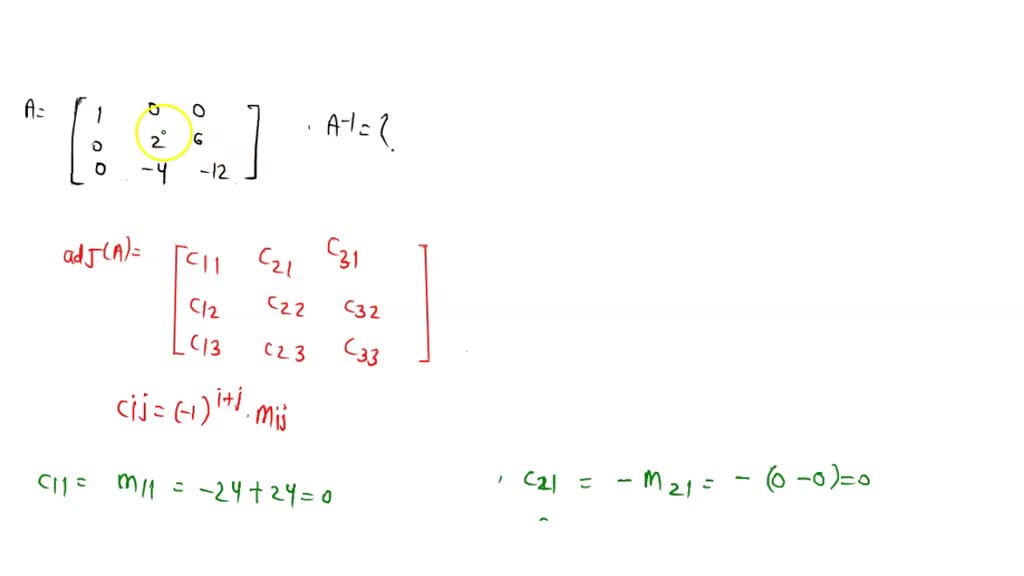 A= [ 1 0 0
0 2 6
0 -4 -12 ] , A-1 = ?
adj(A)= [ C11 C21 C31
C12 C22 C32
C13 C23 C33 ]
Cij = (-1)^i+j . Mij
C11 = M11 = -24+24=0 , C21 = - M21 = - (0-0)=0